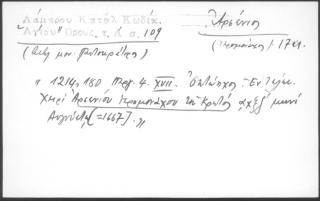 Λάμπρου Κατάλ Κωδίκ.
Ἁγίου Ὄρους, τ. σ. 109
Ἀρσένιος
(Ἱερομόναχος) 1721.
" 1214, 180 Περγ. 4. XVII. Ὀκτώηχος. Ἐν τέλει.
Χειρὶ Ἀρσενίου ἱερομονάχου τοῦ Κρητός, αχξζ΄ μηνὶ
Αὐγούστῳ [=1667]. "